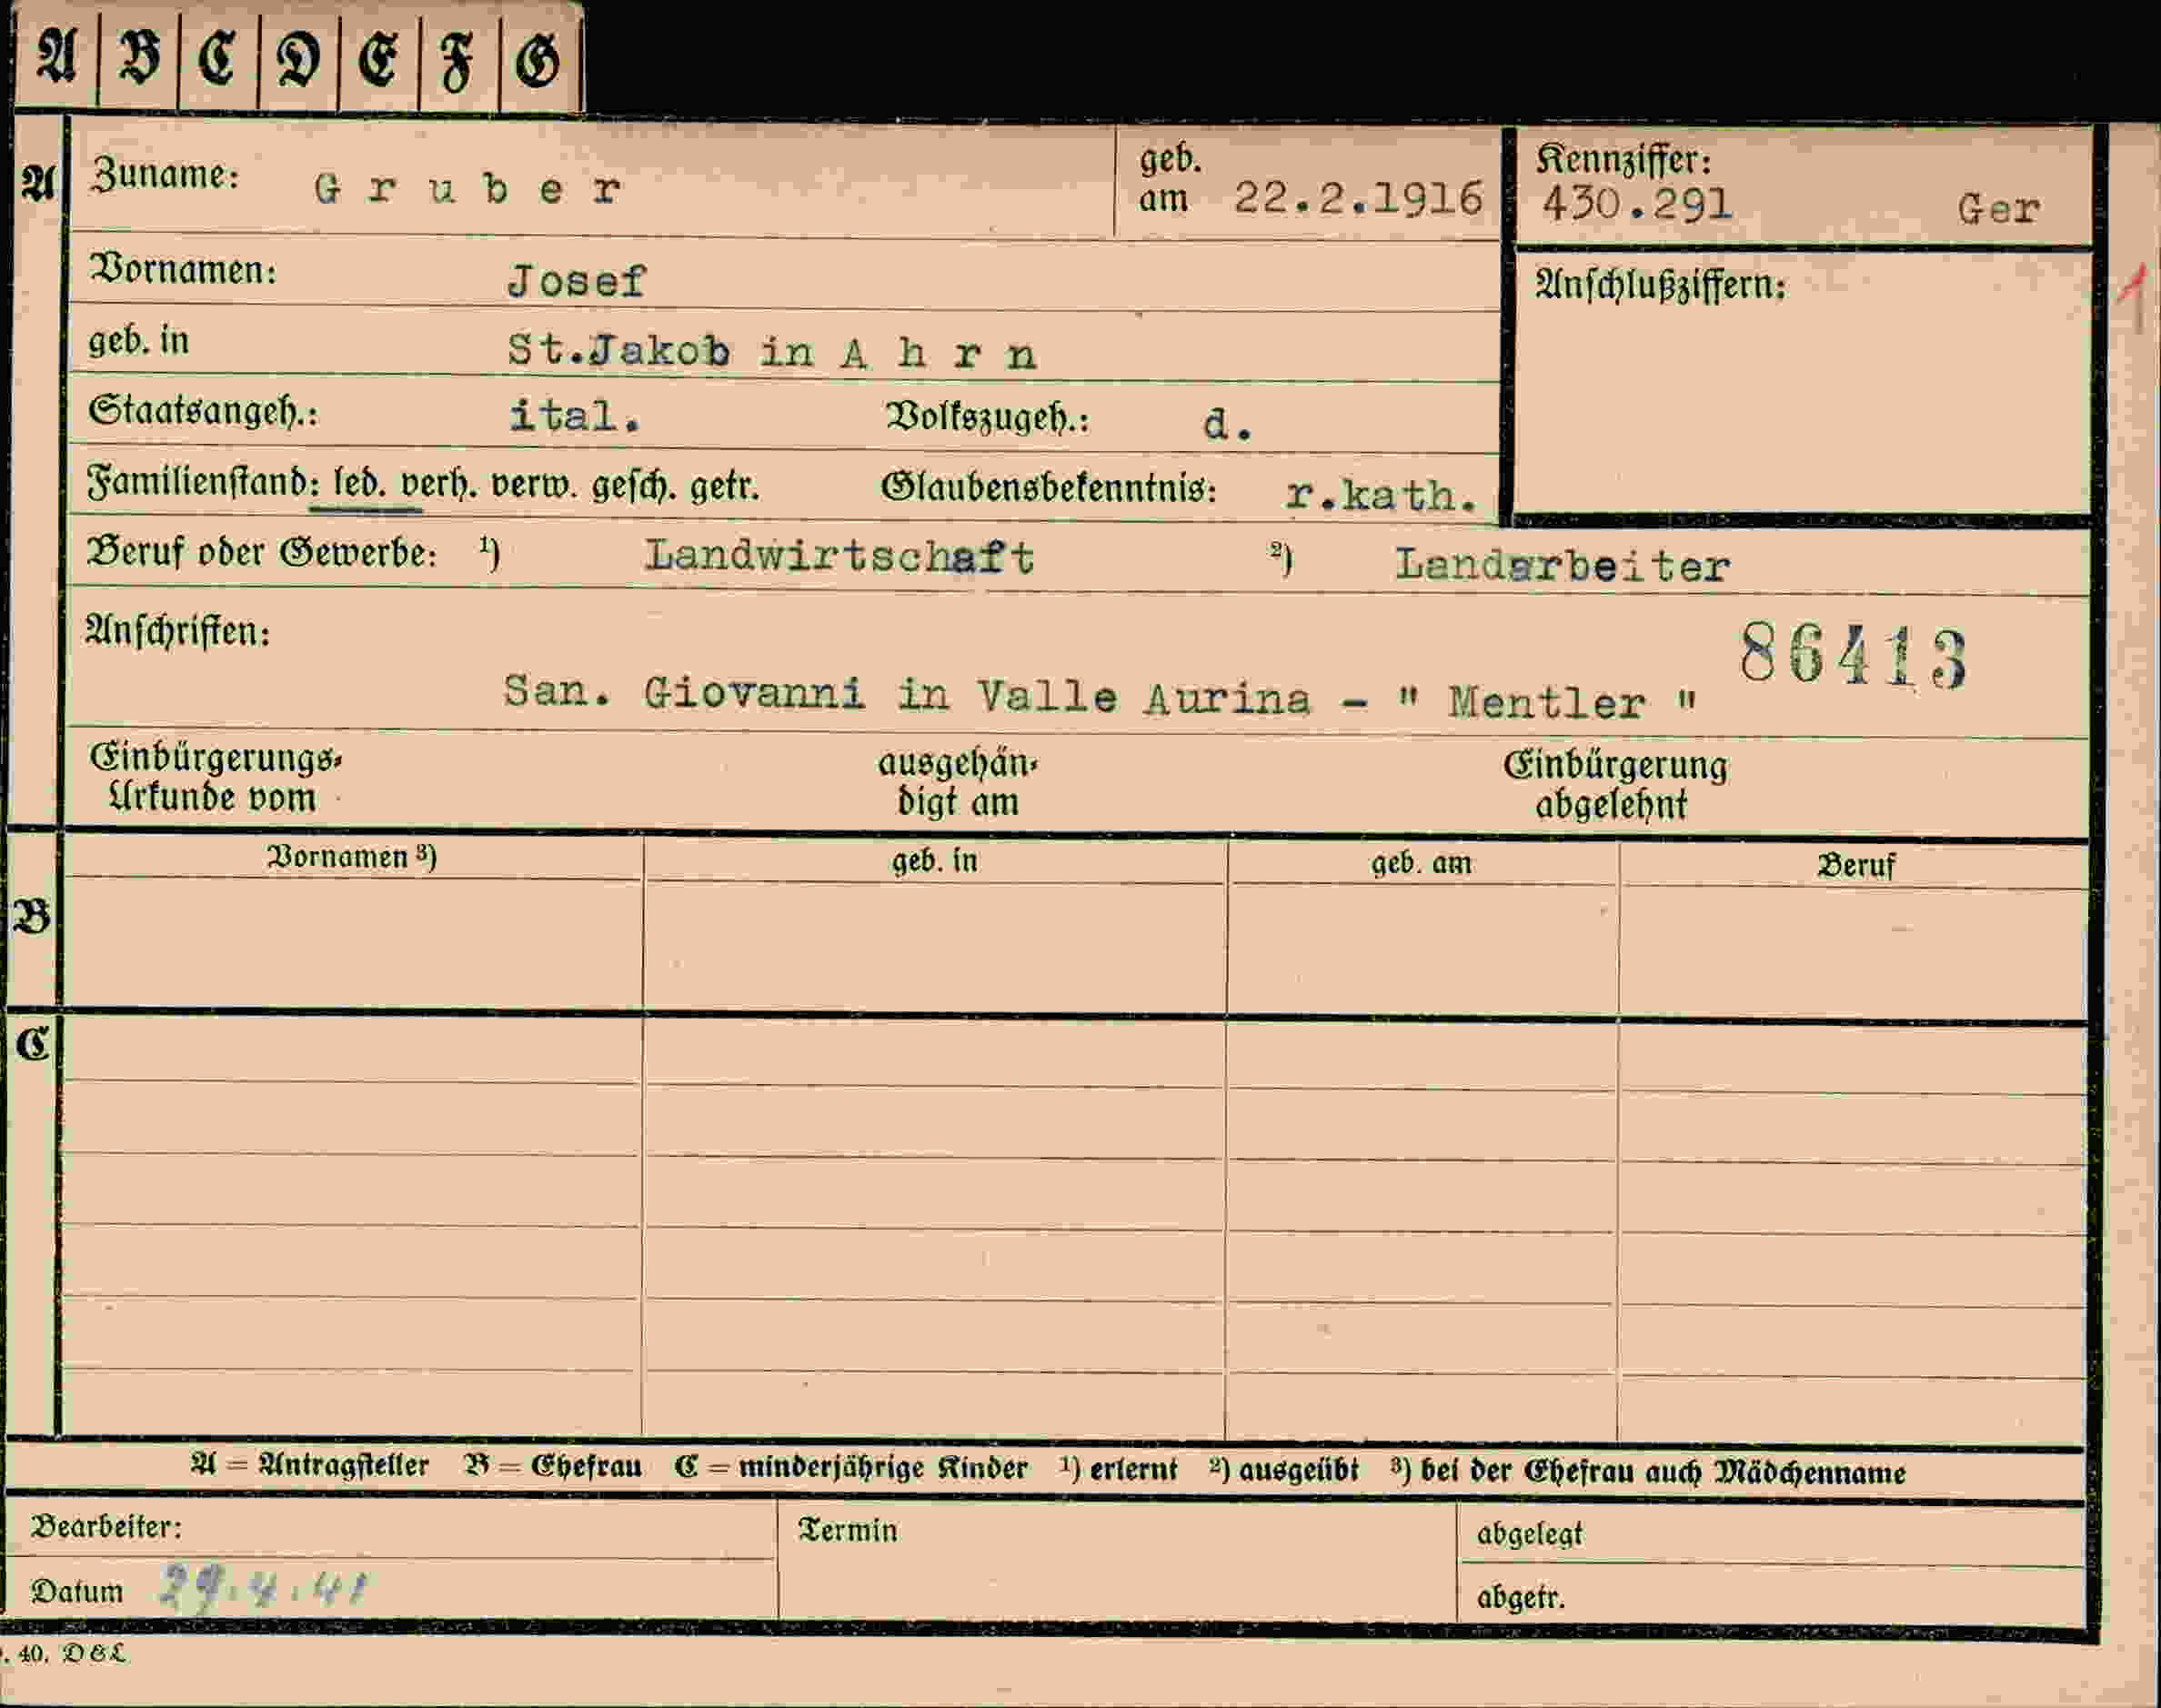 A B C D E F G
A Zuname: G r u b e r geb. am 22.2.1916 Kennziffer: 430.291 Ger
Vornamen: Josef Anschlußziffern: 1
geb. in St.Jakob in A h r n
Staatsangeh.: ital. Volkszugeh.: d.
Familienstand: led. verh. verw. gesch. getr. Glaubensbekenntnis: r.kath.
Beruf oder Gewerbe: ¹) Landwirtschaft ²) Landarbeiter
Anschriften: 86413
San. Giovanni in Valle Aurina - " Mentler "
Einbürgerungs- ausgehän- Einbürgerung
Urkunde vom digt am abgelehnt
Vornamen ³) geb. in geb. am Beruf
B
C
A = Antragsteller B = Ehefrau C = minderjährige Kinder ¹) erlernt ²) ausgeübt ³) bei der Ehefrau auch Mädchenname
Bearbeiter: Termin abgelegt
Datum 29.4.41 abgetr.
. 40. D&L